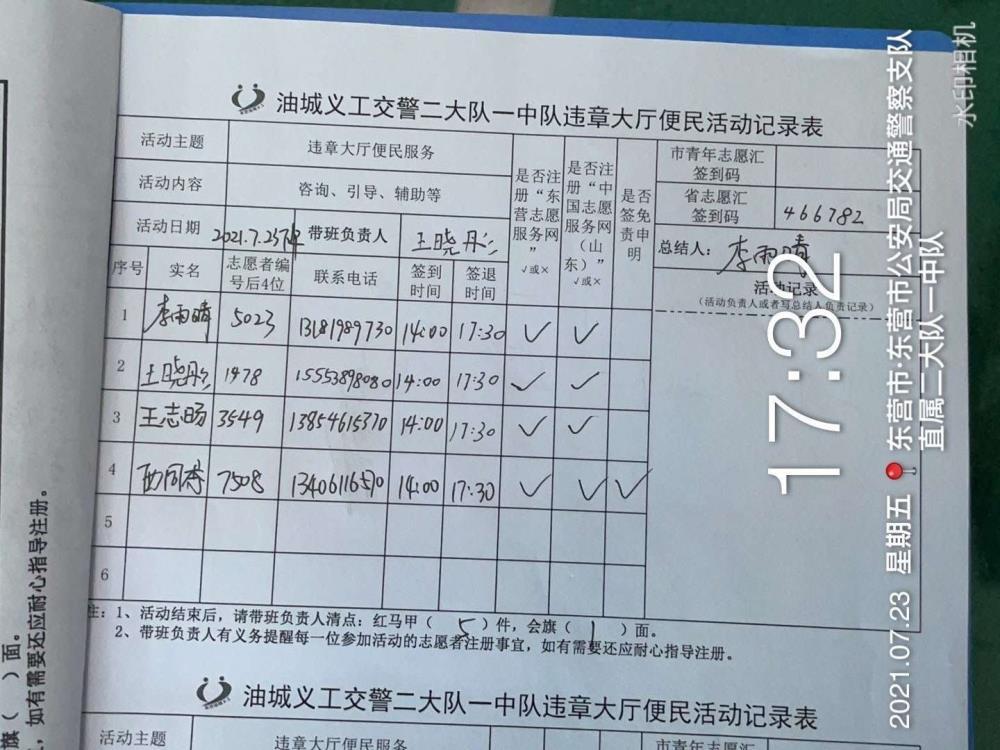 油城义工交警二大队一中队违章大厅便民活动记录表
活动主题 违章大厅便民服务
活动内容 咨询、引导、辅助等
活动日期 2021.7.23下午 带班负责人 王晓彤
是否注册“东营志愿服务网” √或×
是否注册“中国志愿服务网（山东）” √或×
是否签免责申明
市青年志愿汇签到码
省志愿汇签到码 466782
总结人：李雨晴
活动记录
（活动负责人或者写总结人负责记录）
序号 实名 志愿者编号后4位 联系电话 签到时间 签退时间
1 李雨晴 5023 13181989730 14:00 17:30 √ √
2 王晓彤 1478 15553898080 14:00 17:30 √ √
3 王志旸 3549 13854615370 14:00 17:30 √ √
4 7508 13406116570 14:00 17:30 √ √ √
5
6
注：1、活动结束后，请带班负责人清点：红马甲（ 5 ）件，会旗（ 1 ）面。
2、带班负责人有义务提醒每一位参加活动的志愿者注册事宜，如有需要还应耐心指导注册。
油城义工交警二大队一中队违章大厅便民活动记录表
活动主题 违章大厅便民服务
市青年志愿汇
旗（ ）面。
，如有需要还应耐心指导注册。
17:32
2021.07.23 星期五
东营市·东营市公安局交通警察支队
直属二大队一中队
水印相机